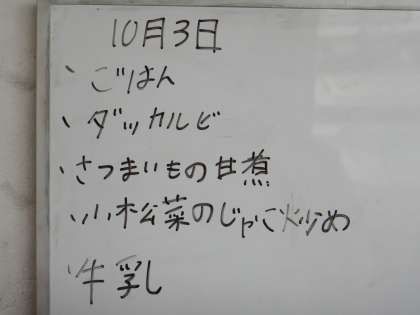 10月3日
、ごはん
、ダッカルビ
、さつまいもの甘煮
、小松菜のじゃこ炒め
、牛乳